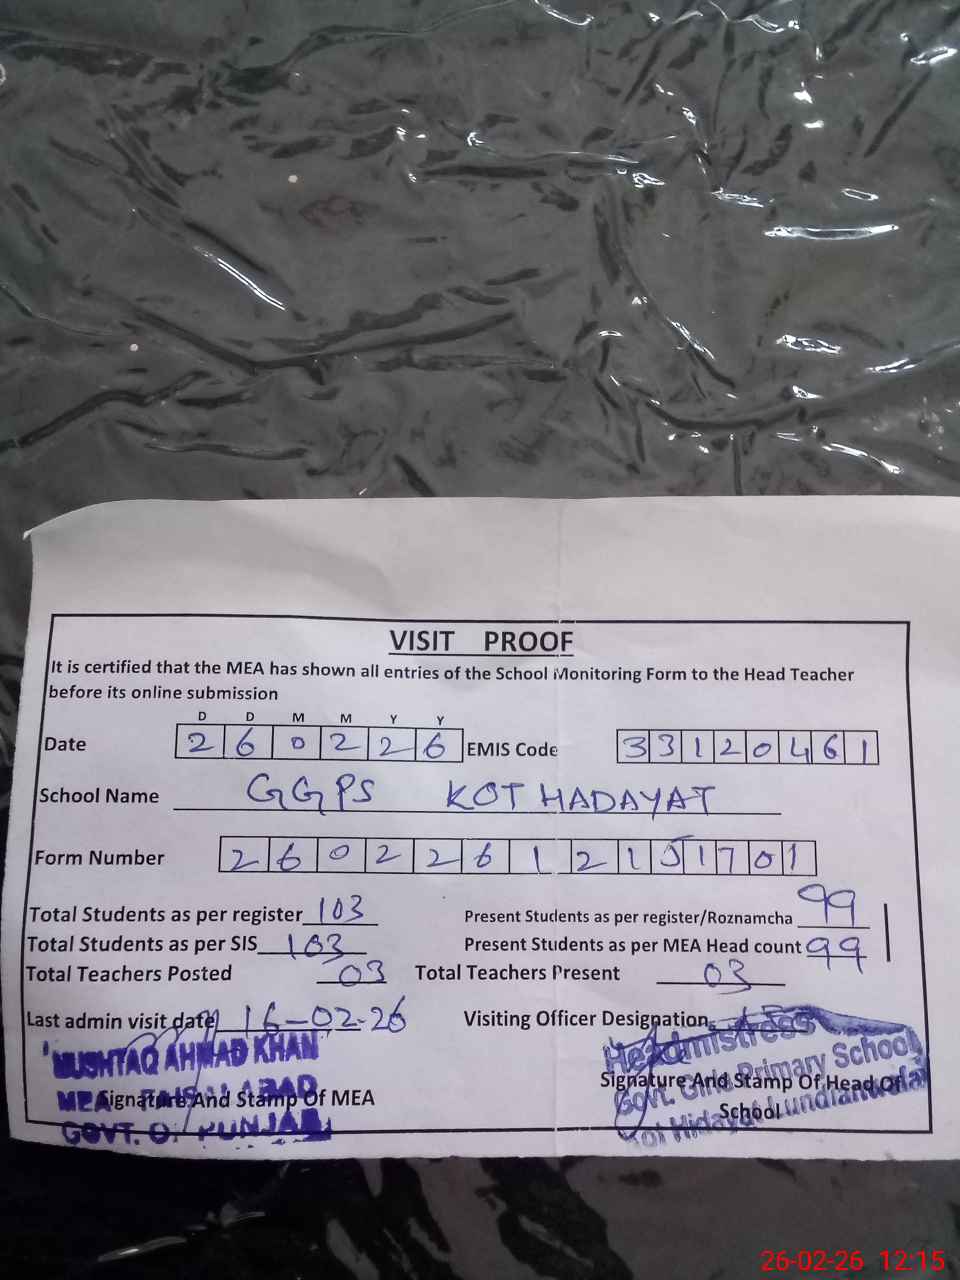 VISIT PROOF
It is certified that the MEA has shown all entries of the School Monitoring Form to the Head Teacher
before its online submission
D D M M Y Y
Date 2 6 0 2 2 6 EMIS Code 3 3 1 2 0 4 6 1
School Name GGPS KOT HADAYAT
Form Number 2 6 0 2 2 6 1 2 1 5 1 7 0 1
Total Students as per register 103 Present Students as per register/Roznamcha 99
Total Students as per SIS 103 Present Students as per MEA Head count 99
Total Teachers Posted 03 Total Teachers Present 03
Last admin visit date 16-02-26 Visiting Officer Designation AEO
MUSHTAQ AHMAD KHAN Headmistress
MEA FAISALABAD Govt. Girls Primary School
Signature And Stamp Of MEA Signature And Stamp Of Head Of
School
GOVT. OF PUNJAB Kot Hidayat
26-02-26 12:15